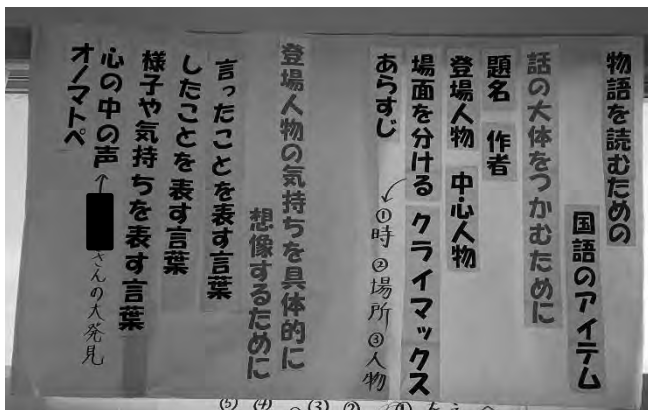 物語を読むための
国語のアイテム
話の大体をつかむために
題名 作者
登場人物 中心人物
場面を分ける クライマックス
①時 ②場所 ③人物
あらすじ
登場人物の気持ちを具体的に
想像するために
言ったことを表す言葉
したことを表す言葉
様子や気持ちを表す言葉
心の中の声
さんの大発見
オノマトペ